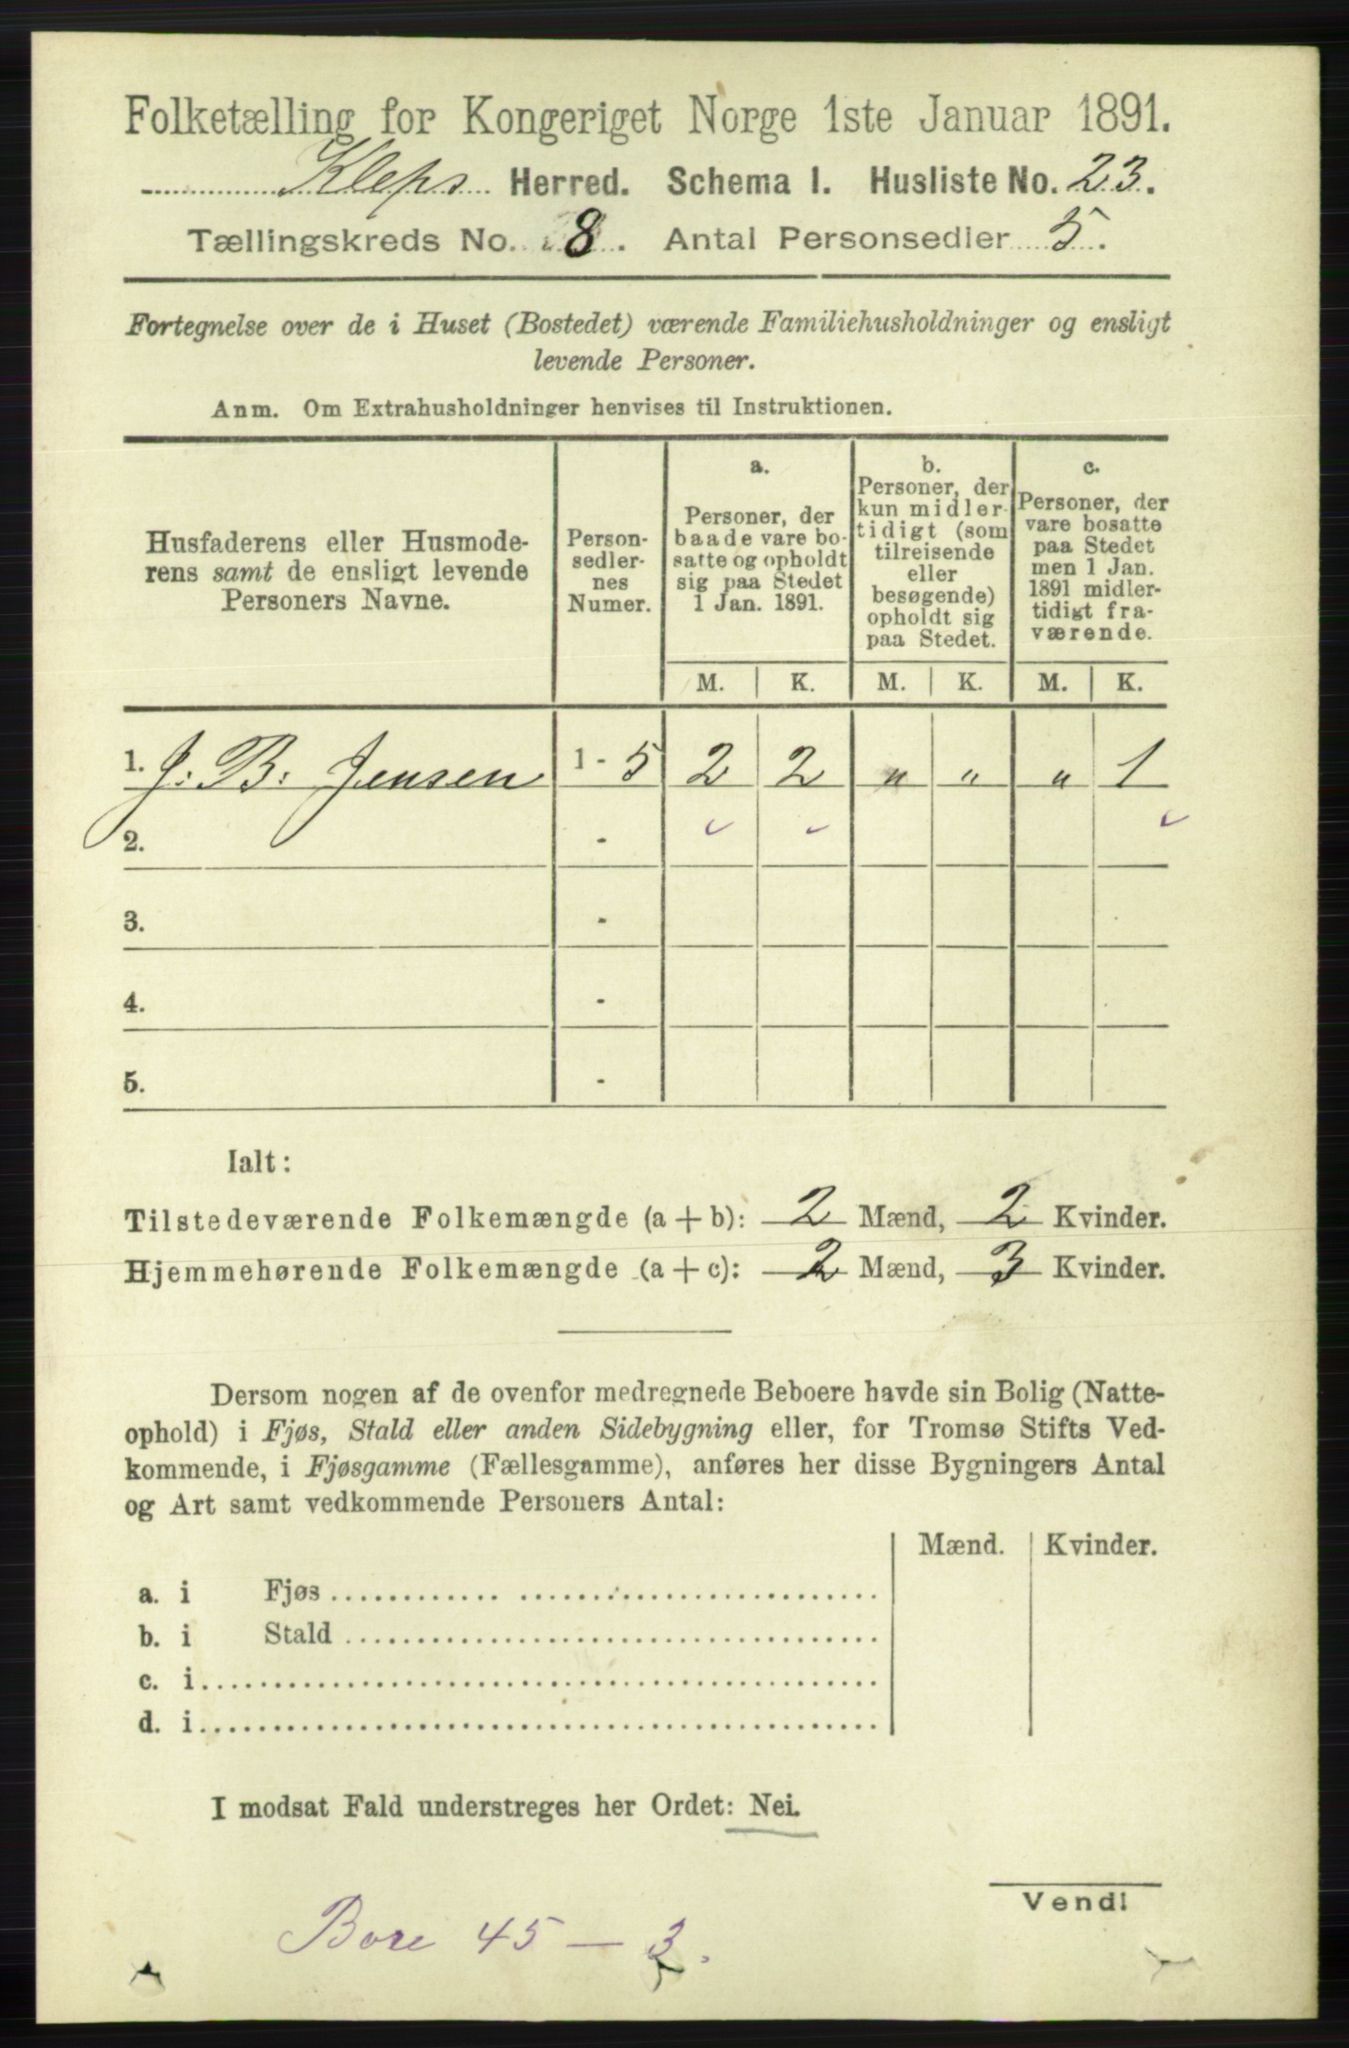 Folketælling for Kongeriget Norge 1ste Januar 1891.
Kleps Herred. Schema I. Husliste No. 23.
Tællingskreds No. 8. Antal Personsedler 5.
Fortegnelse over de i Huset (Bostedet) værende Familiehusholdninger og ensligt
levende Personer.
Anm. Om Extrahusholdninger henvises til Instruktionen.
Husfaderens eller Husmode-
rens samt de ensligt levende
Personers Navne.
Person-
sedler-
nes
Numer.
a.
Personer, der
baade vare bo-
satte og opholdt
sig paa Stedet
1 Jan. 1891.
b.
Personer, der
kun midler-
tidigt (som
tilreisende
eller
besøgende)
opholdt sig
paa Stedet.
c.
Personer, der
vare bosatte
paa Stedet
men 1 Jan.
1891 midler-
tidigt fra-
værende.
M. K. M. K. M. K.
1. J: B: Jensen 1 - 5 2 2 „ „ „ 1
2. -
3. -
4. -
5. -
Ialt:
Tilstedeværende Folkemængde (a + b): 2 Mænd, 2 Kvinder.
Hjemmehørende Folkemængde (a + c): 2 Mænd, 3 Kvinder.
Dersom nogen af de ovenfor medregnede Beboere havde sin Bolig (Natte-
ophold) i Fjøs, Stald eller anden Sidebygning eller, for Tromsø Stifts Ved-
kommende, i Fjøsgamme (Fællesgamme), anføres her disse Bygningers Antal
og Art samt vedkommende Personers Antal:
Mænd. Kvinder.
a. i Fjøs
b. i Stald
c. i
d. i
I modsat Fald understreges her Ordet: Nei.
Vend!
Bore 45 — 3.